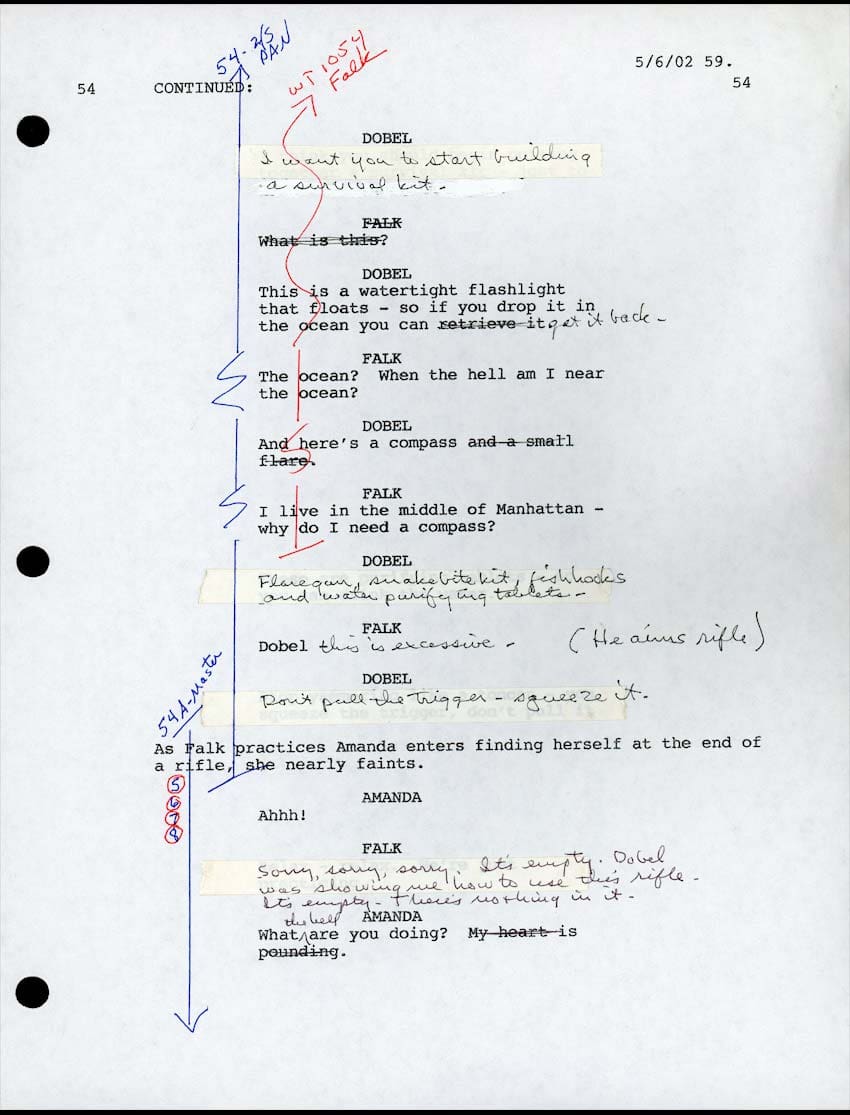 54-2/S
PAN
WT 1054
Falk
5/6/02 59.
54 CONTINUED: 54
DOBEL
I want you to start building
a survival kit.
FALK
What is this?
DOBEL
This is a watertight flashlight
that floats - so if you drop it in
the ocean you can retrieve it get it back -
FALK
The ocean?  When the hell am I near
the ocean?
DOBEL
And here's a compass and a small
flare.
FALK
I live in the middle of Manhattan -
why do I need a compass?
DOBEL
Flaregun, snakebite kit, fishhooks
and water purifying tablets -
FALK
Dobel this is excessive - (He aims rifle)
DOBEL
Don't pull the trigger - squeeze it.
squeeze the trigger, don't pull it.
54A-Master
As Falk practices Amanda enters finding herself at the end of
a rifle, she nearly faints.
5
6
7
8
AMANDA
Ahhh!
FALK
Sorry, sorry, sorry. It's empty. Dobel
was showing me how to use this rifle -
It's empty - There's nothing in it -
AMANDA
the hell
What are you doing?  My heart is
pounding.